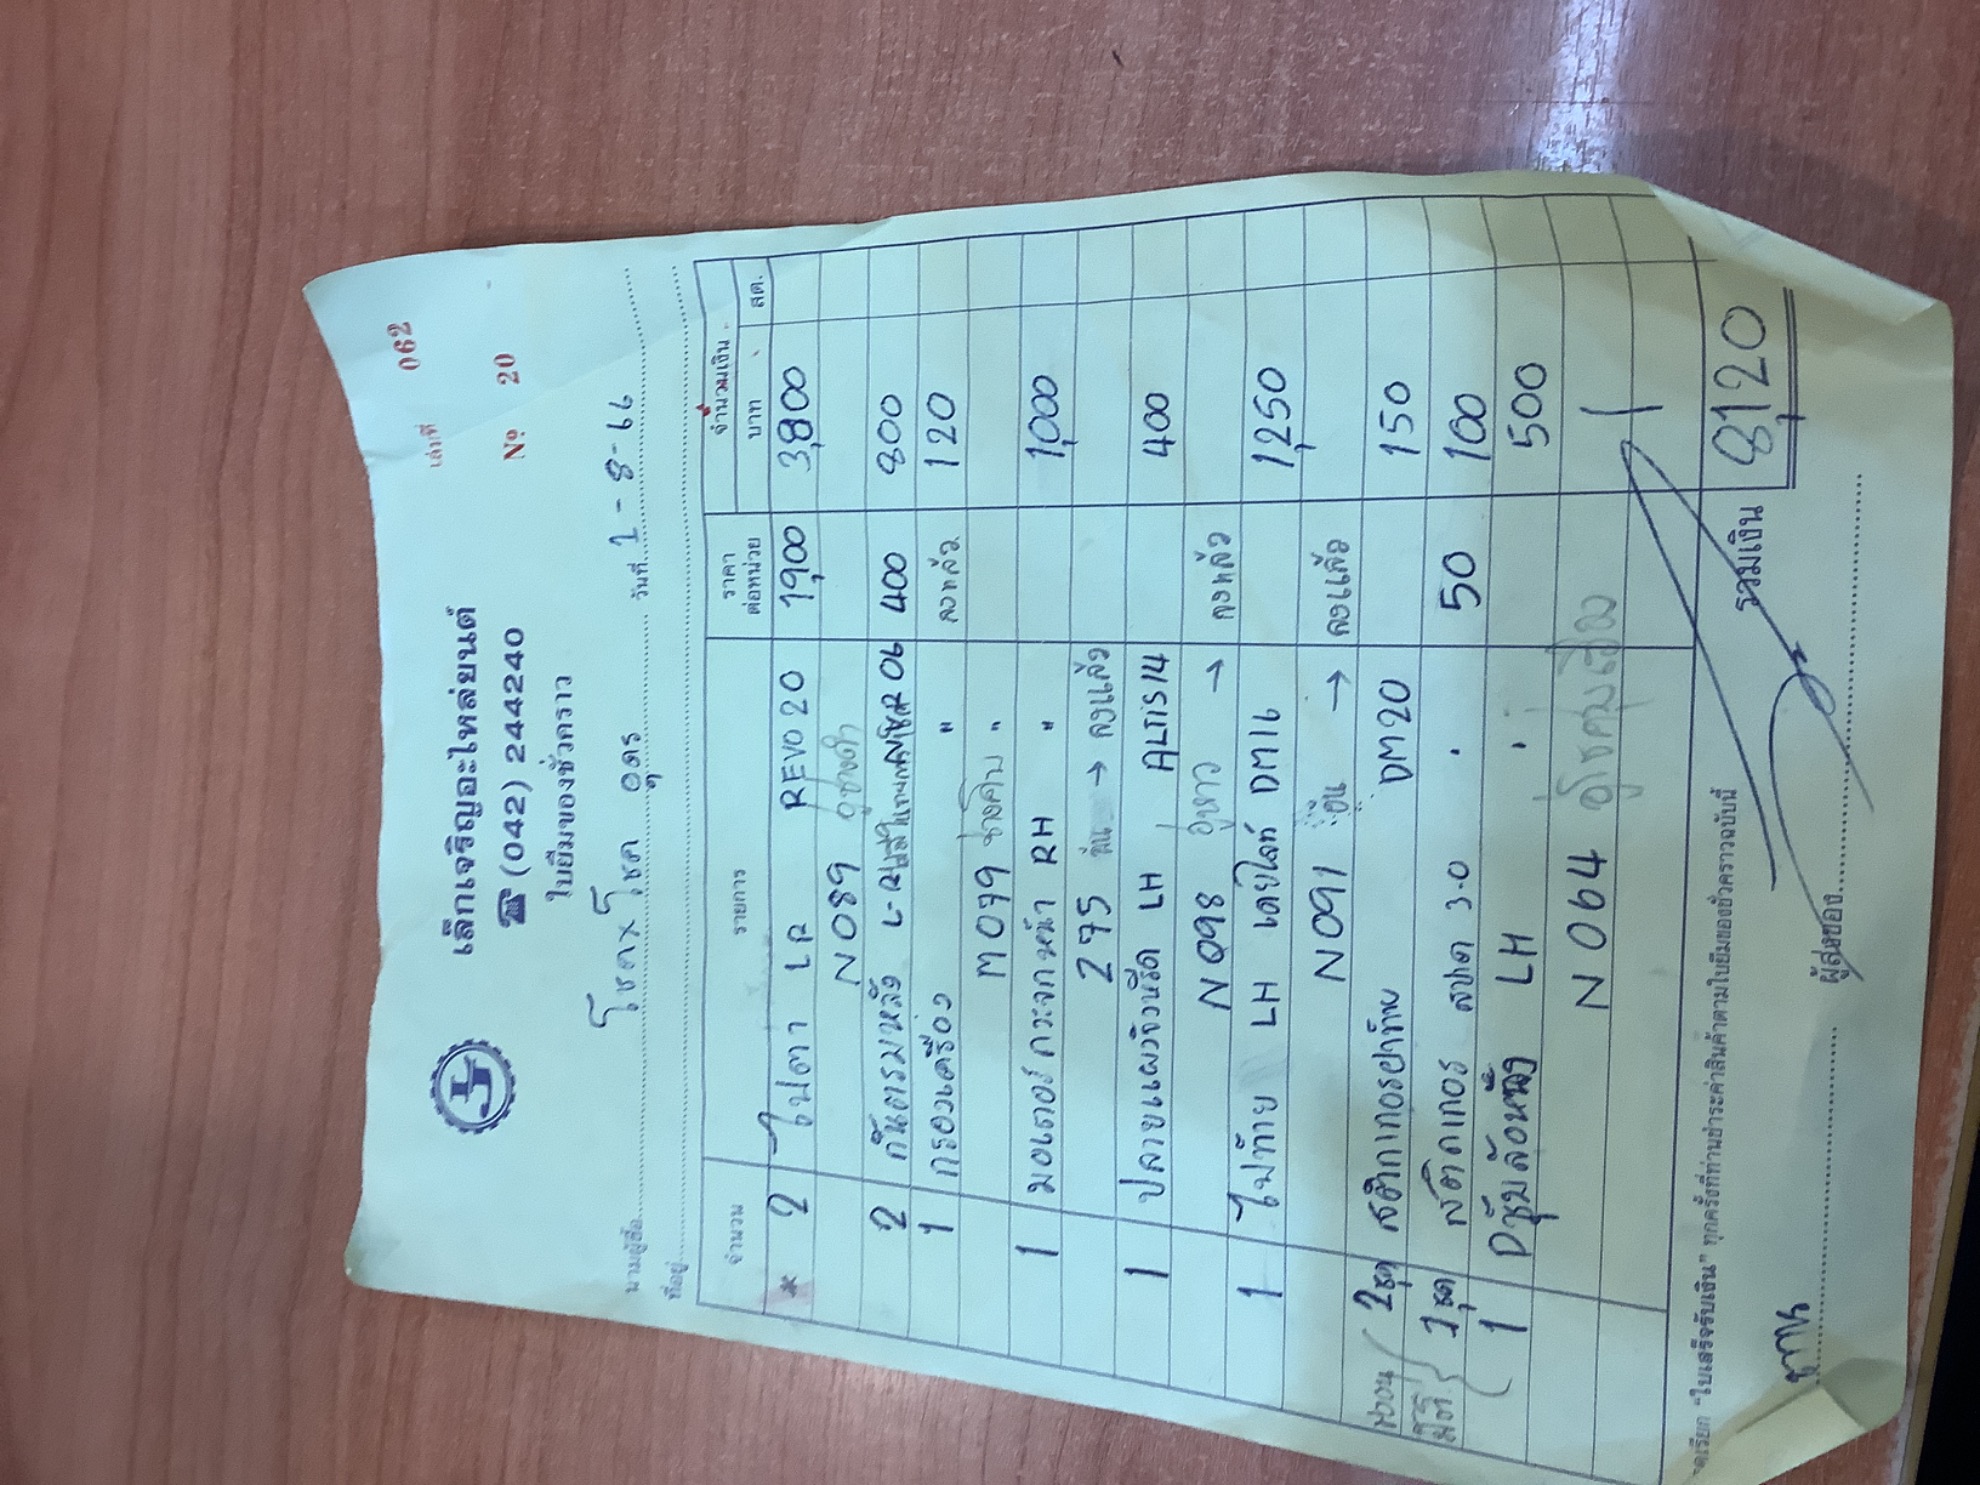 เล่มที่ 062
เล็กเจริญอะไหล่ยนต์
☎ (042) 244240
Nº 20
ใบยืมของชั่วคราว
นามผู้ซื้อ โชคxโชค อุดร วันที่ 1-8-66
ที่อยู่
จำนวน รายการ ราคาต่อหน่วย จำนวนเงิน
บาท สต.
* 2 ไฟตา LR REVO 20 1,900 3,800
N 089 อู่ช่างดำ
2 กันตรมหลัง 06 400 800
1 กรองเครื่อง " 120
M 079 " ลงแล้ว
1 มอเตอร์กระจกหน้า RH " 1,000
275 → ลงแล้ว
1 ปลายแผงจิ้งหรีด LH ALTIS 14 400
N 098 → ลงแล้ว
1 ไฟท้าย LH เดย์ไลท์ DM16 1,250
N 091 → ลงแล้ว
2ชุด สติกเกอร์ฝาท้าย DM20 150
1ชุด สติกเกอร์ 3.0 50 100
1 ซุ้มล้อหลัง LH 500
N 064
รวมเงิน 8,120
เรียก "ใบเสร็จรับเงิน" ทุกครั้งที่ท่านชำระค่าสินค้าตามใบยืมของชั่วคราวฉบับนี้
ผู้ส่งของ